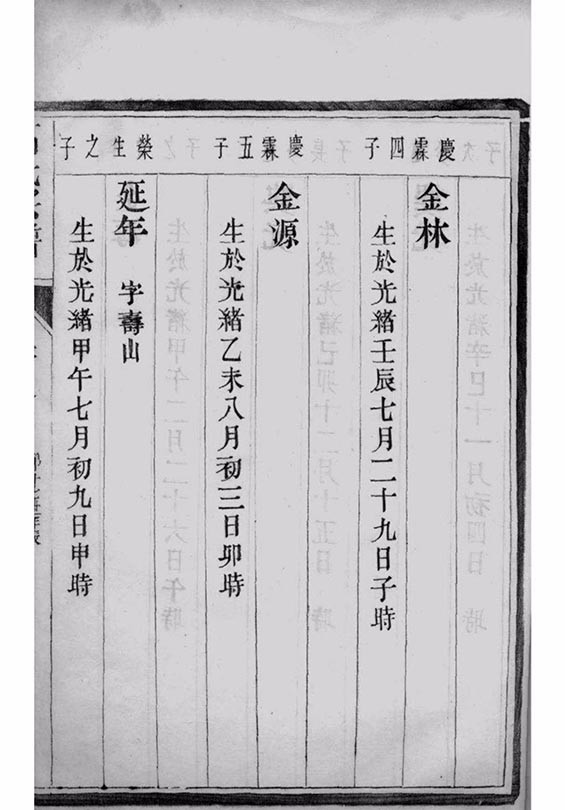 慶霖四子
金林
生於光緒壬辰七月二十九日子時
慶霖五子
金源
生於光緒乙未八月初三日卯時
榮生之子
延年 字壽山
生於光緒甲午七月初九日申時